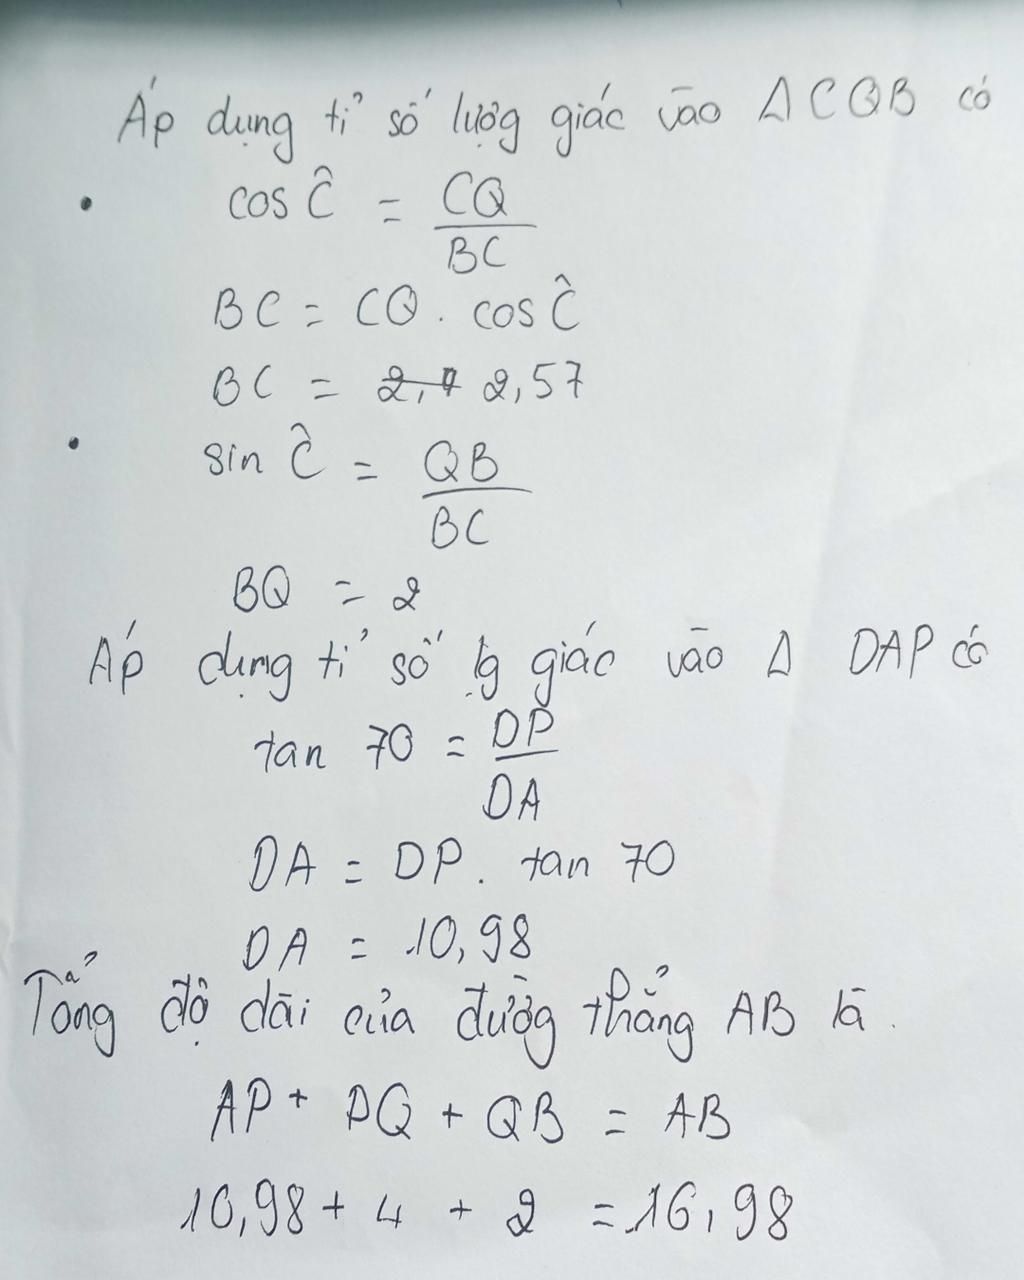 Áp dụng tỉ số lượg giác vào Δ CQB có
• cos Ĉ = CQ / BC
BC = CQ . cos Ĉ
BC = 2,57
• sin Ĉ = QB / BC
BQ = 2
Áp dụng tỉ số lg giác vào Δ DAP có
tan 70 = DP / DA
DA = DP . tan 70
DA = 10,98
Tổng độ dài của đườg thẳng AB là.
AP + PQ + QB = AB
10,98 + 4 + 2 = 16,98